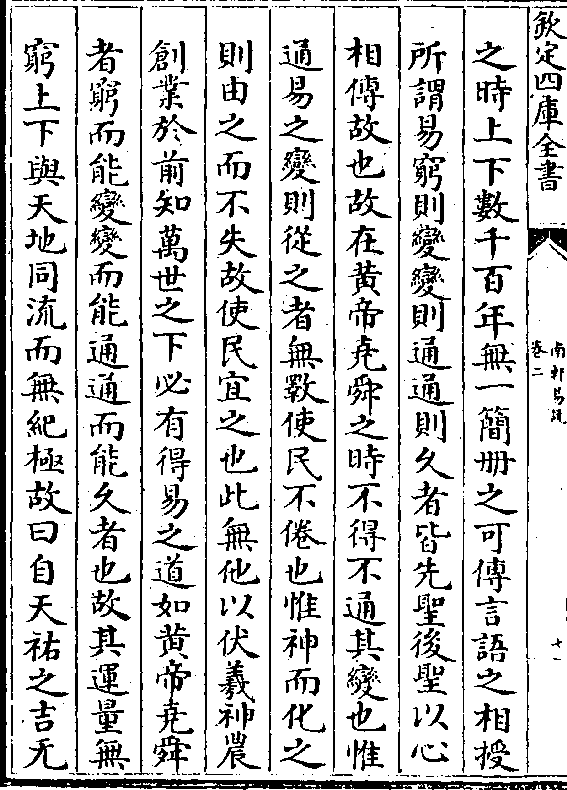 欽定四庫全書
南軒易說
卷二
十一
之時上下數千百年無一簡冊之可傳言語之相授
所謂易窮則變變則通通則久者皆先聖後聖以心
相傳故也故在黃帝堯舜之時不得不通其變也惟
通易之變則從之者無斁使民不倦也惟神而化之
則由之而不失故使民宜之也此無他以伏羲神農
創業於前知萬世之下必有得易之道如黃帝堯舜
者窮而能變變而能通通而能久者也故其運量無
窮上下與天地同流而無紀極故曰自天祐之吉无